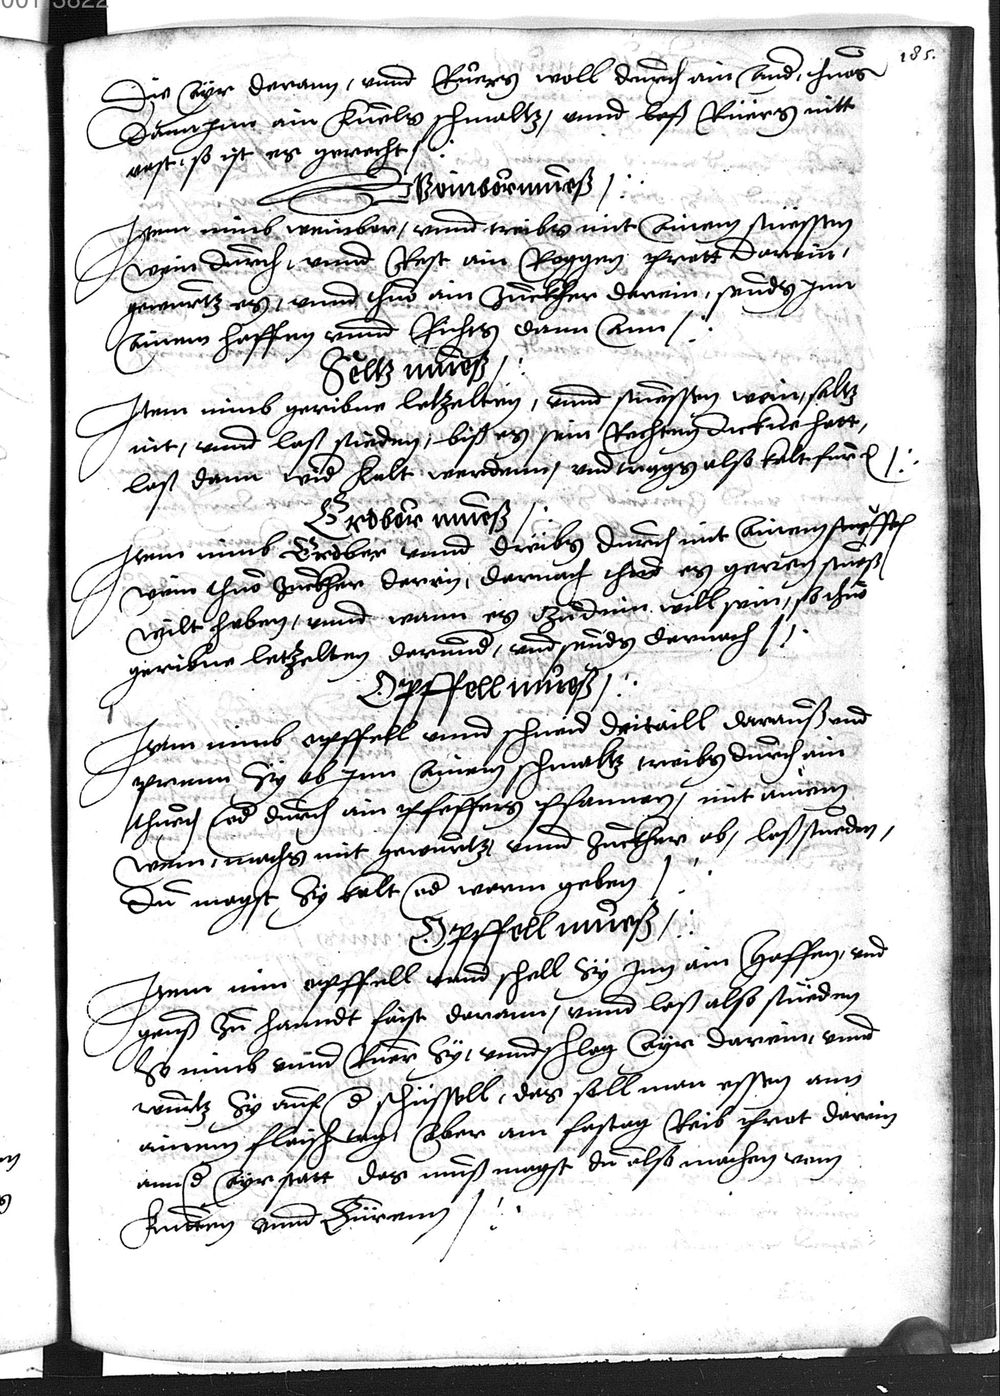 185.
Die Ayr darann, vnnd Rüers woll durch ain And, thuos
Dann Inn ain schmaltz, vnnd laß Rüers nitt
vast, so ist es gerecht /:
Weinbörmueß /:
Item nimb weinber, vnnd treibs mit ainem suessen
wein durch, vnnd Rest ain Roggen prott darein,
gewurtz es, vnnd thuo ain Zuckher darein, seuds Inn
ainem haffen vnnd Richts dann Ann /:
Seltz mueß /:
Item nimb geribne letzelten, vnnd suessen wein, saltz
nit, vnnd laß sieden, biß es sein Rechten dickhe hatt,
laß dann wid kalt werdenn, vnd traggs also kalt für /:
Erdbör mueß /:
Item nimb Erdber vnnd treibs durch mit Ainem suessen
wein thuo Zuckher darein, darnach thuo es gern süeß
wilt haben, vnnd wann es Zudinn will sein, so thuo
geribne letzelten darunnd, vnd seuds darnach /:
Opffell mueß /:
Item nimb opffell vnnd schneid drittaill darauß vnd
prenn Sy ab Inn Ainem schmaltz treibs durch ain
thuech od durch ain pfeffers pfannen, mit ainem
wein, machs mit gewurtz vnnd Zuckher ab, laß sieden,
Du magst Sy kalt od warm geben /:
Opffell mueß /:
Item nim opffell vnnd schell Sy Inn ain Haffen, vnd
geuß Zu hanndt faist darann, vnnd laß also sieden
So nimb vnnd Ruer Sy, vnnd schlag Ayr darein, vnnd
wurtz Sy auf d schüssell, das soll man essen ann
ainem flaisch tag, Aber am fastag Reib prot darein
ann d Ayr statt das mueß magst du also machen vom
Kutten vnnd Bürenn /: